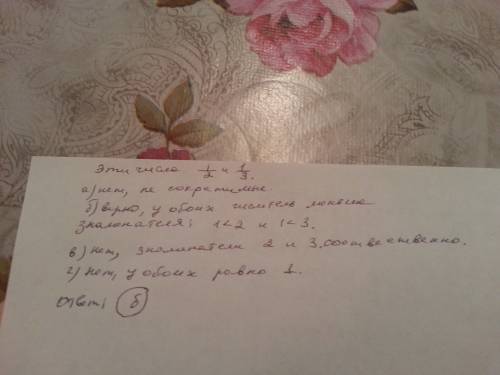 Эти числа 1/2 и 1/3.
а) нет, не сократимые
б) верно, у обоих числитель меньше
знаменателя; 1<2 и 1<3.
в) нет, знаменатели 2 и 3 соотвественно.
г) нет, у обоих равно 1.
Ответ: б